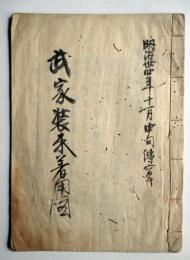 明治廿四年十一月中旬傳寫
武家装束着用図